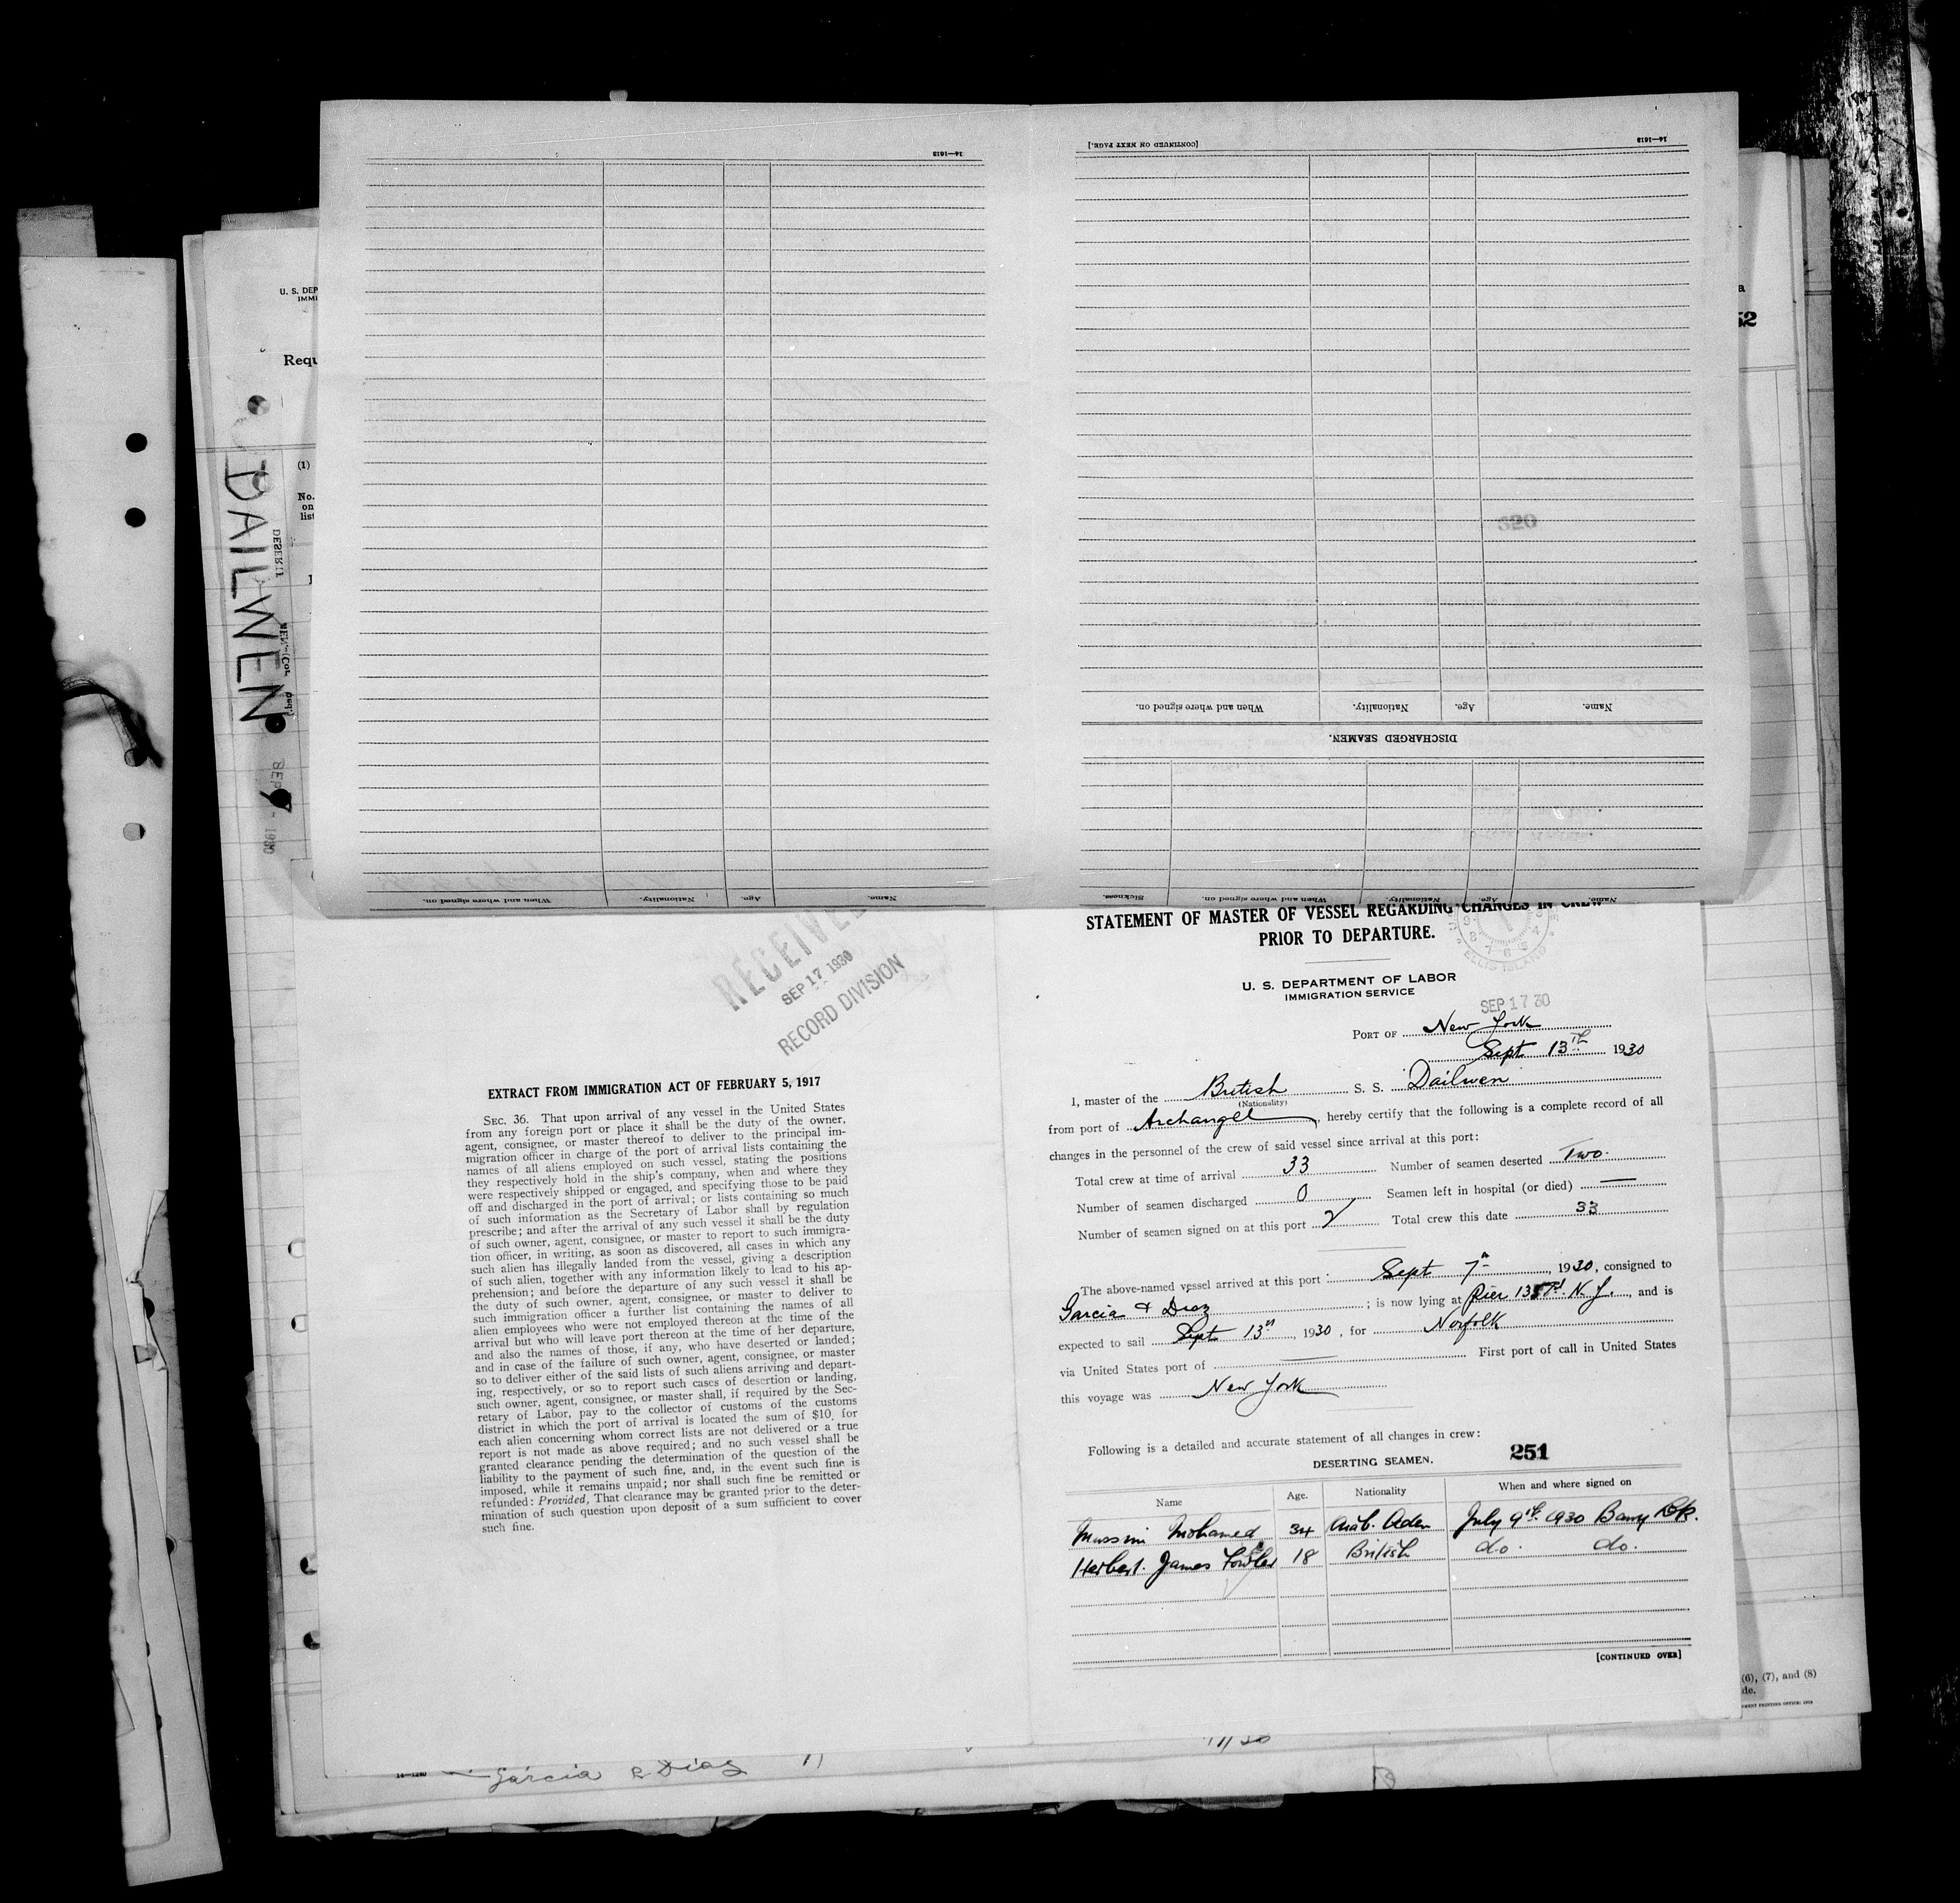 14—1613
[CONTINUED ON NEXT PAGE.]
14—1613
Name.
Age.
Nationality.
When and where signed on.
DISCHARGED SEAMEN.
Name.
Age.
Nationality.
When and where signed on.
Name.
Age.
Nationality.
When and where signed on.
Sickness.
320
U. S. DEP
IMMI
Requ
(1)
No.
on
list
DAILWEN
1930
52
RECEIVE
SEP 17 1930
RECORD DIVISION
EXTRACT FROM IMMIGRATION ACT OF FEBRUARY 5, 1917
SEC. 36. That upon arrival of any vessel in the United States
from any foreign port or place it shall be the duty of the owner,
agent, consignee, or master thereof to deliver to the principal im-
migration officer in charge of the port of arrival lists containing the
names of all aliens employed on such vessel, stating the positions
they respectively hold in the ship's company, when and where they
were respectively shipped or engaged, and specifying those to be paid
off and discharged in the port of arrival; or lists containing so much
of such information as the Secretary of Labor shall by regulation
prescribe; and after the arrival of any such vessel it shall be the duty
of such owner, agent, consignee, or master to report to such immigra-
tion officer, in writing, as soon as discovered, all cases in which any
such alien has illegally landed from the vessel, giving a description
of such alien, together with any information likely to lead to his ap-
prehension; and before the departure of any such vessel it shall be
the duty of such owner, agent, consignee, or master to deliver to
such immigration officer a further list containing the names of all
alien employees who were not employed thereon at the time of the
arrival but who will leave port thereon at the time of her departure,
and also the names of those, if any, who have deserted or landed;
and in case of the failure of such owner, agent, consignee, or master
so to deliver either of the said lists of such aliens arriving and depart-
ing, respectively, or so to report such cases of desertion or landing,
such owner, agent, consignee, or master shall, if required by the Sec-
retary of Labor, pay to the collector of customs of the customs
district in which the port of arrival is located the sum of $10 for
each alien concerning whom correct lists are not delivered or a true
report is not made as above required; and no such vessel shall be
granted clearance pending the determination of the question of the
liability to the payment of such fine, and, in the event such fine is
imposed, while it remains unpaid; nor shall such fine be remitted or
refunded: Provided, That clearance may be granted prior to the deter-
mination of such question upon deposit of a sum sufficient to cover
such fine.
STATEMENT OF MASTER OF VESSEL REGARDING CHANGES IN CREW
PRIOR TO DEPARTURE.
ELLIS ISLAND
U. S. DEPARTMENT OF LABOR
IMMIGRATION SERVICE
SEP 17 30
PORT OF New York
Sept 13th 1930
I, master of the British S. S. Dailwen
(Nationality)
from port of Archangel, hereby certify that the following is a complete record of all
changes in the personnel of the crew of said vessel since arrival at this port:
Total crew at time of arrival 33 Number of seamen deserted Two.
Number of seamen discharged 0 Seamen left in hospital (or died) —
Number of seamen signed on at this port 2 Total crew this date 33
The above-named vessel arrived at this port: Sept 7th, 1930, consigned to
Garcia & Diaz; is now lying at Pier N. Y., and is
expected to sail Sept 13th, 1930, for Norfolk
via United States port of — First port of call in United States
this voyage was New York
Following is a detailed and accurate statement of all changes in crew:
251
DESERTING SEAMEN.
Name Age. Nationality When and where signed on
Mussin Mohamed 34 Arab. Aden July 9th 1930 Barry Dk.
Herbert. James Fowler 18 British do. do.
[CONTINUED OVER]
(6), (7), and (8)
de.
Garcia & Diaz